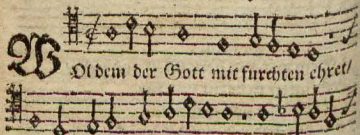 WOl dem der Gott mit furchten ehret/